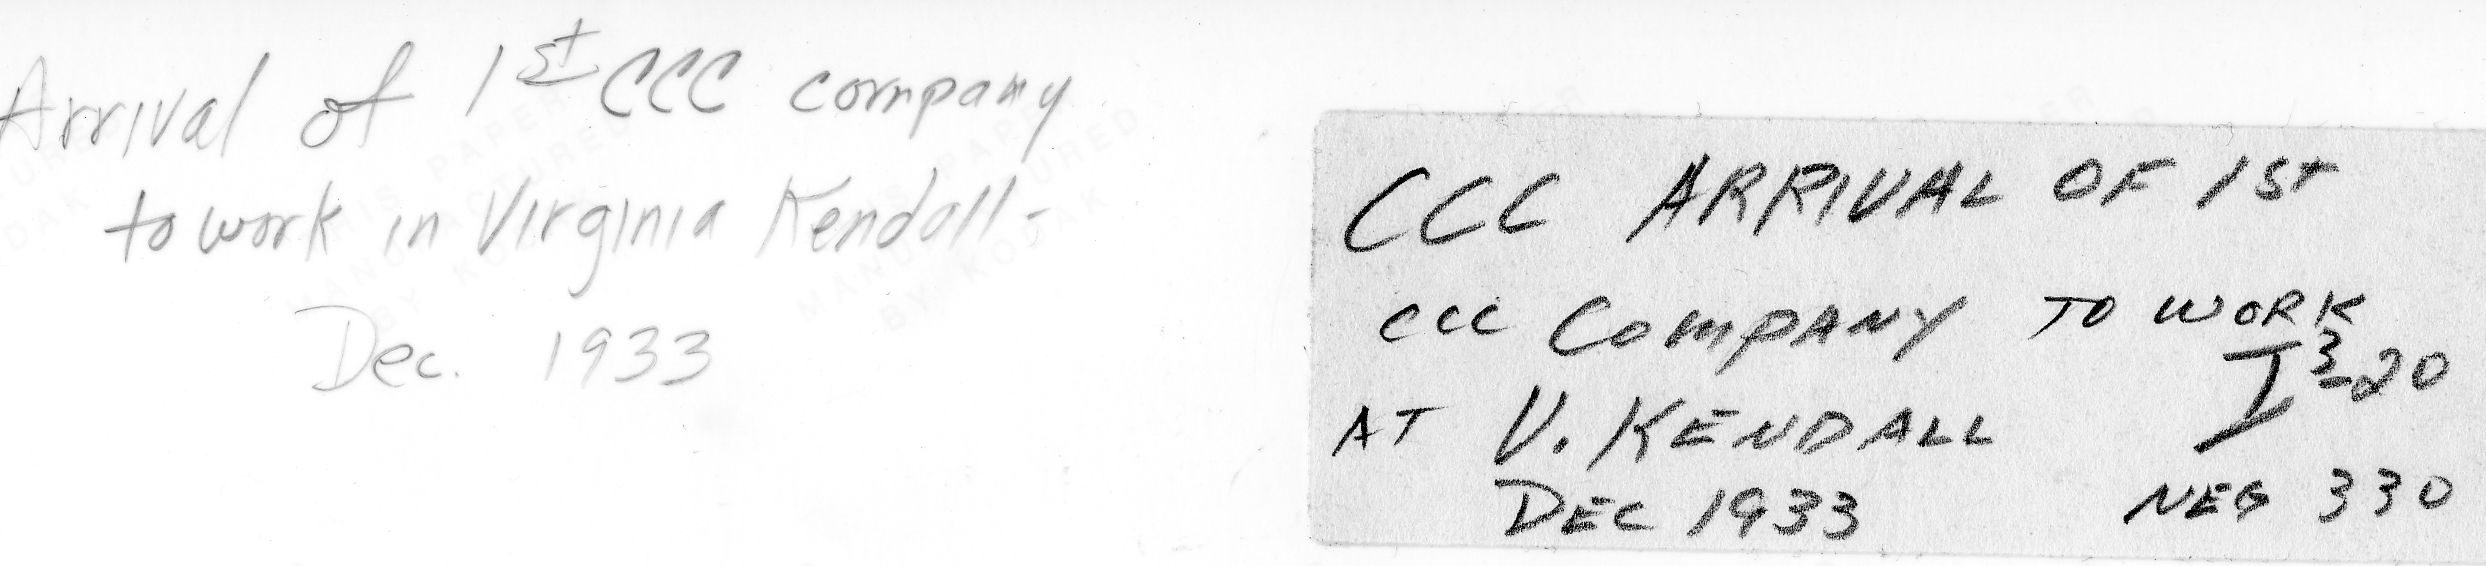 Arrival of 1st CCC company
to work in Virginia Kendall-
Dec. 1933
CCC ARRIVAL OF 1ST
CCC COMPANY TO WORK
I 3-20
AT V. KENDALL
DEC 1933 NEG 330